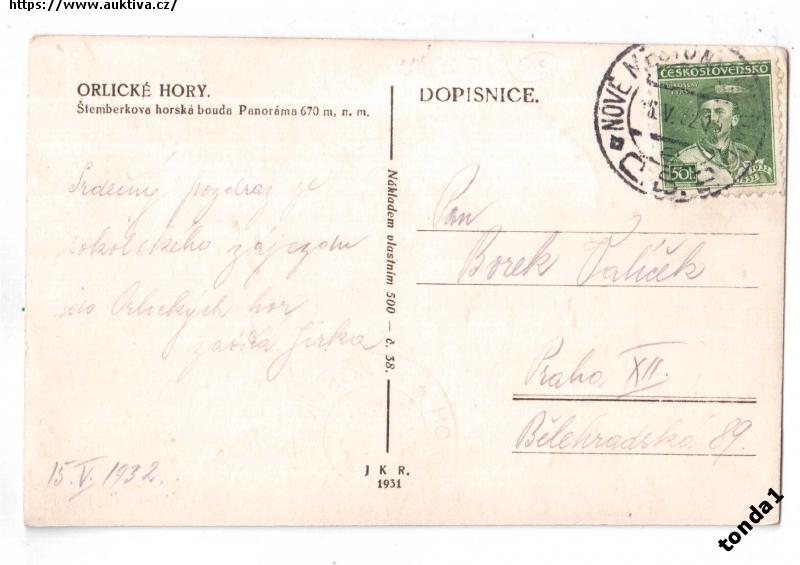 https://www.auktiva.cz/
ORLICKÉ HORY.
Štemberkova horská bouda Panoráma 670 m, n. m.
Srdečný pozdrav ze
sokolského zájezdu
do Orlických hor
zasílá Jirka
15. V. 1932.
Nákladem vlastním 500 — č. 38.
J K R.
1931
DOPISNICE.
NOVÉ MĚSTO N
ČESKOSLOVENSKO
50h
1832
Pan
Borek Palíček
Praha XII.
Bělehradská 89.
tonda1